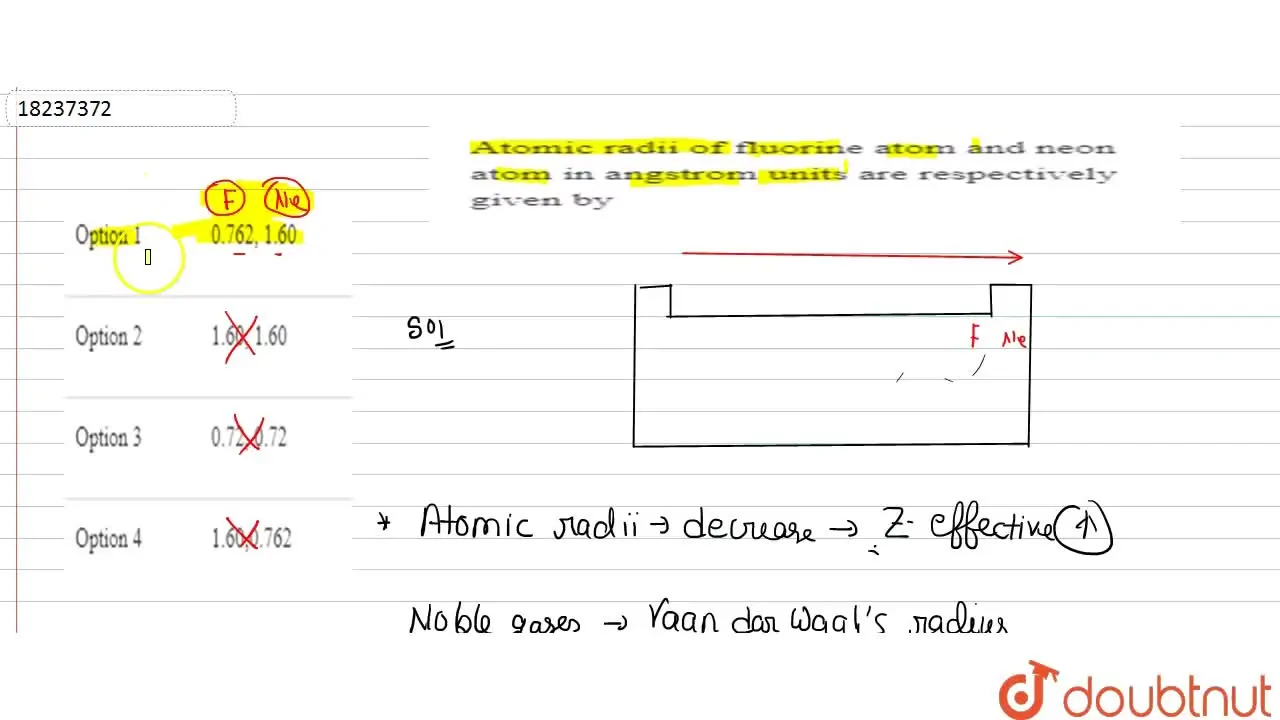 18237372
Atomic radii of fluorine atom and neon
atom in angstrom units are respectively
given by
F Ne
Option 1 0.762, 1.60
Option 2 1.60, 1.60
Option 3 0.72, 0.72
Option 4 1.60, 0.762
Sol
F Ne
* Atomic radii → decrease → Z effective ↑
Noble gases → Vaan dar Waal's radius
doubtnut